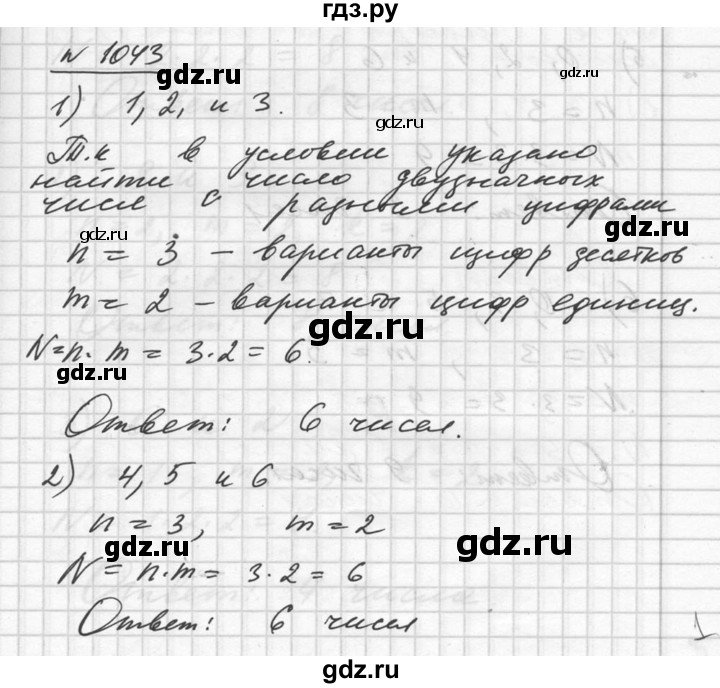 гдз.ру
n 1043
gdz.ru
gdz.ru
1) 1, 2, и 3.
gdz.ru
Т.к в условии указано
найти число двузначных
чисел с разными цифрами
gdz.ru
n = 3 – варианты цифр десятков
m = 2 – варианты цифр единиц.
gdz.ru
N = n · m = 3 · 2 = 6.
gdz.ru
Ответ: 6 чисел.
2) 4, 5 и 6
n = 3, m = 2
gdz.ru
gdz.ru
N = n · m = 3 · 2 = 6
Ответ: 6 чисел
1
gdz.ru
gdz.ru